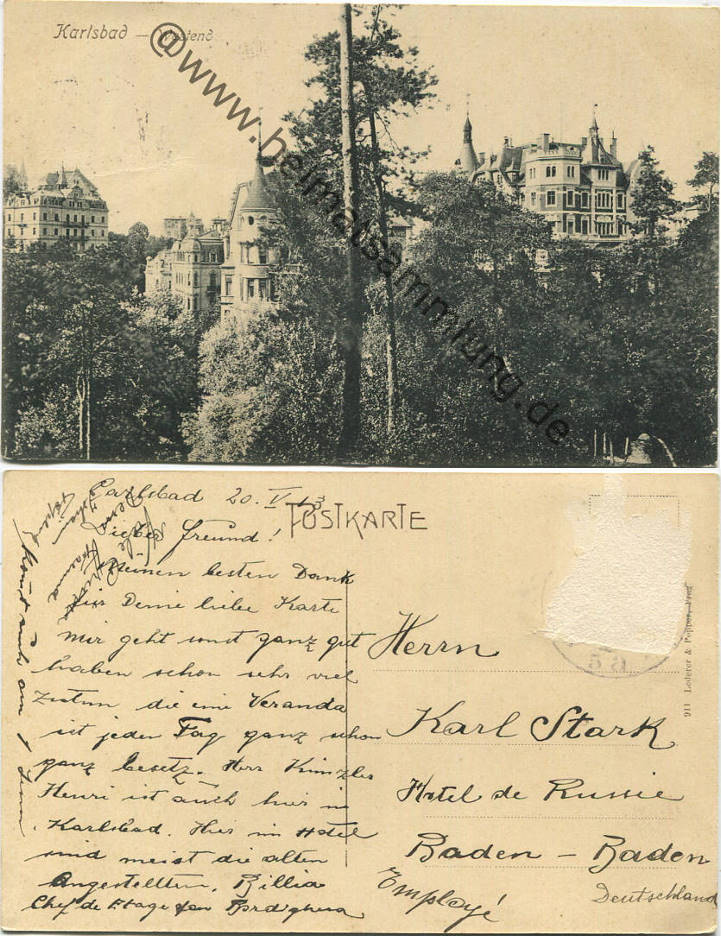 Karlsbad – Westend
@www.heimatsammlung.de
POSTKARTE
Carlsbad 20. V. 13
Lieber Freund!
Meinen besten Dank
für Deine liebe Karte
Mir geht sonst ganz gut
haben schon sehr viel
zutun die eine Veranda
ist jeden Tag ganz schon
ganz besetz. Herr Kinzler
Henri ist auch hier in
Karlsbad. Hier im Hotel
sind meist die alten
Angestellten, Billia
Chef de Etage
Herrn
Karl Stark
Hotel de Russie
Baden – Baden
Employé
Deutschland
911 Lederer & Popper, Prag